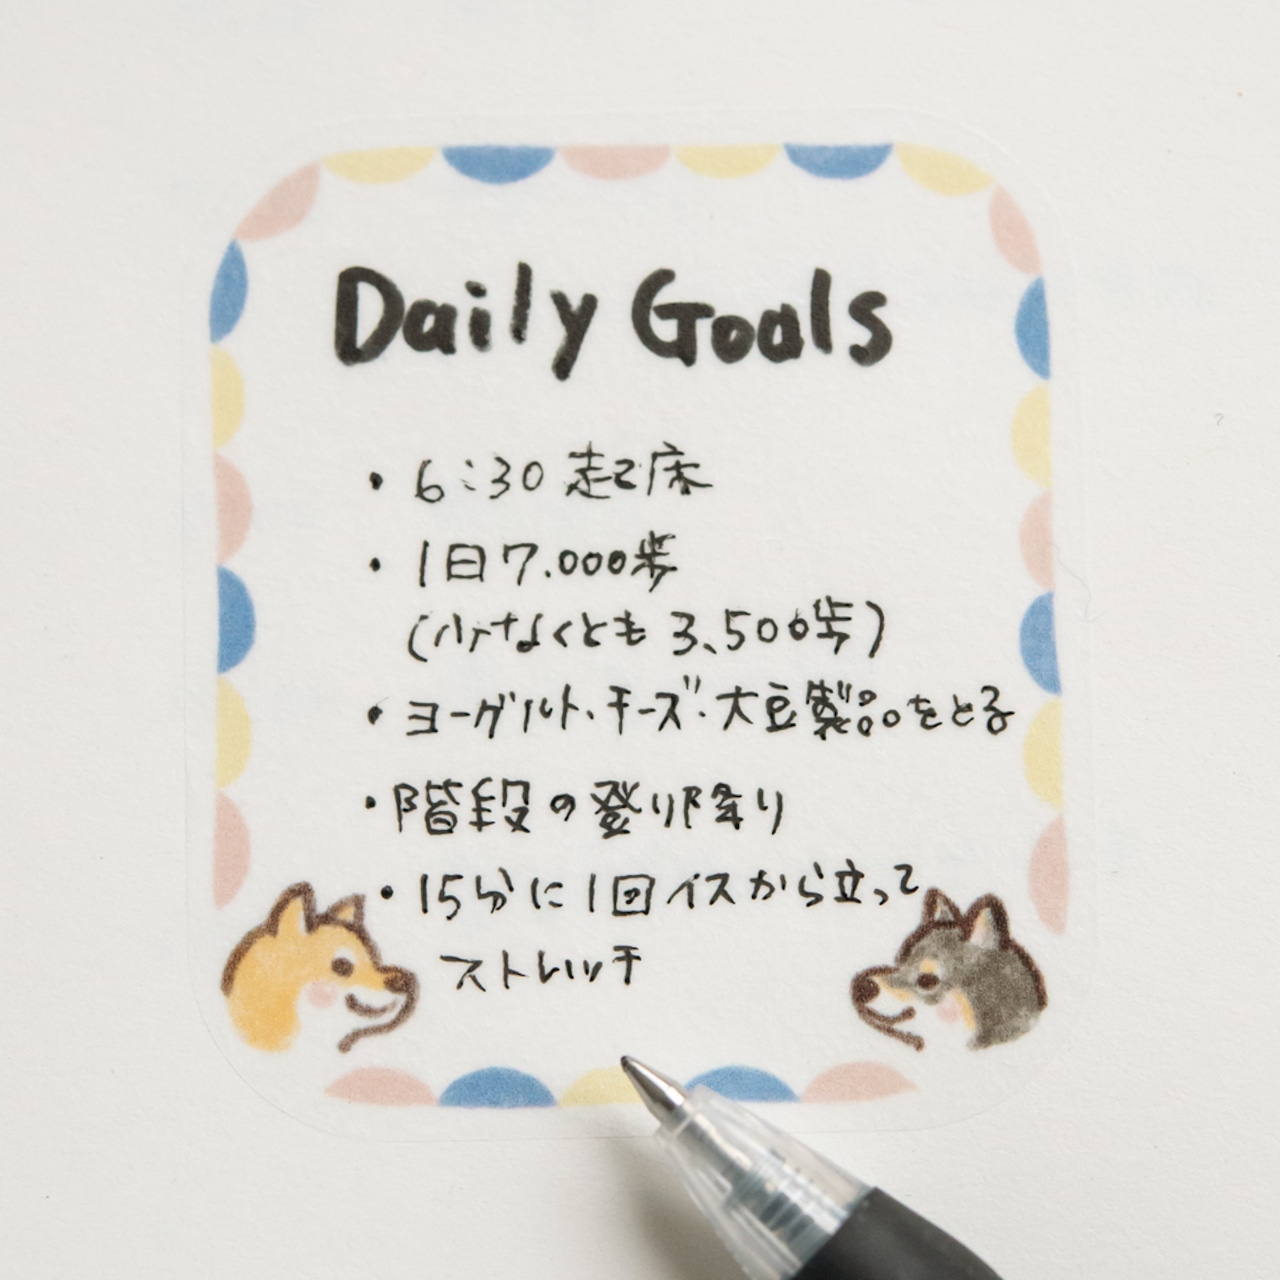 Daily Goals
・6:30 起床
・1日7.000歩
(少なくとも 3,500歩)
・ヨーグルト、チーズ・大豆製品をとる
・階段の登り降り
・15分に1回イスから立って
ストレッチ